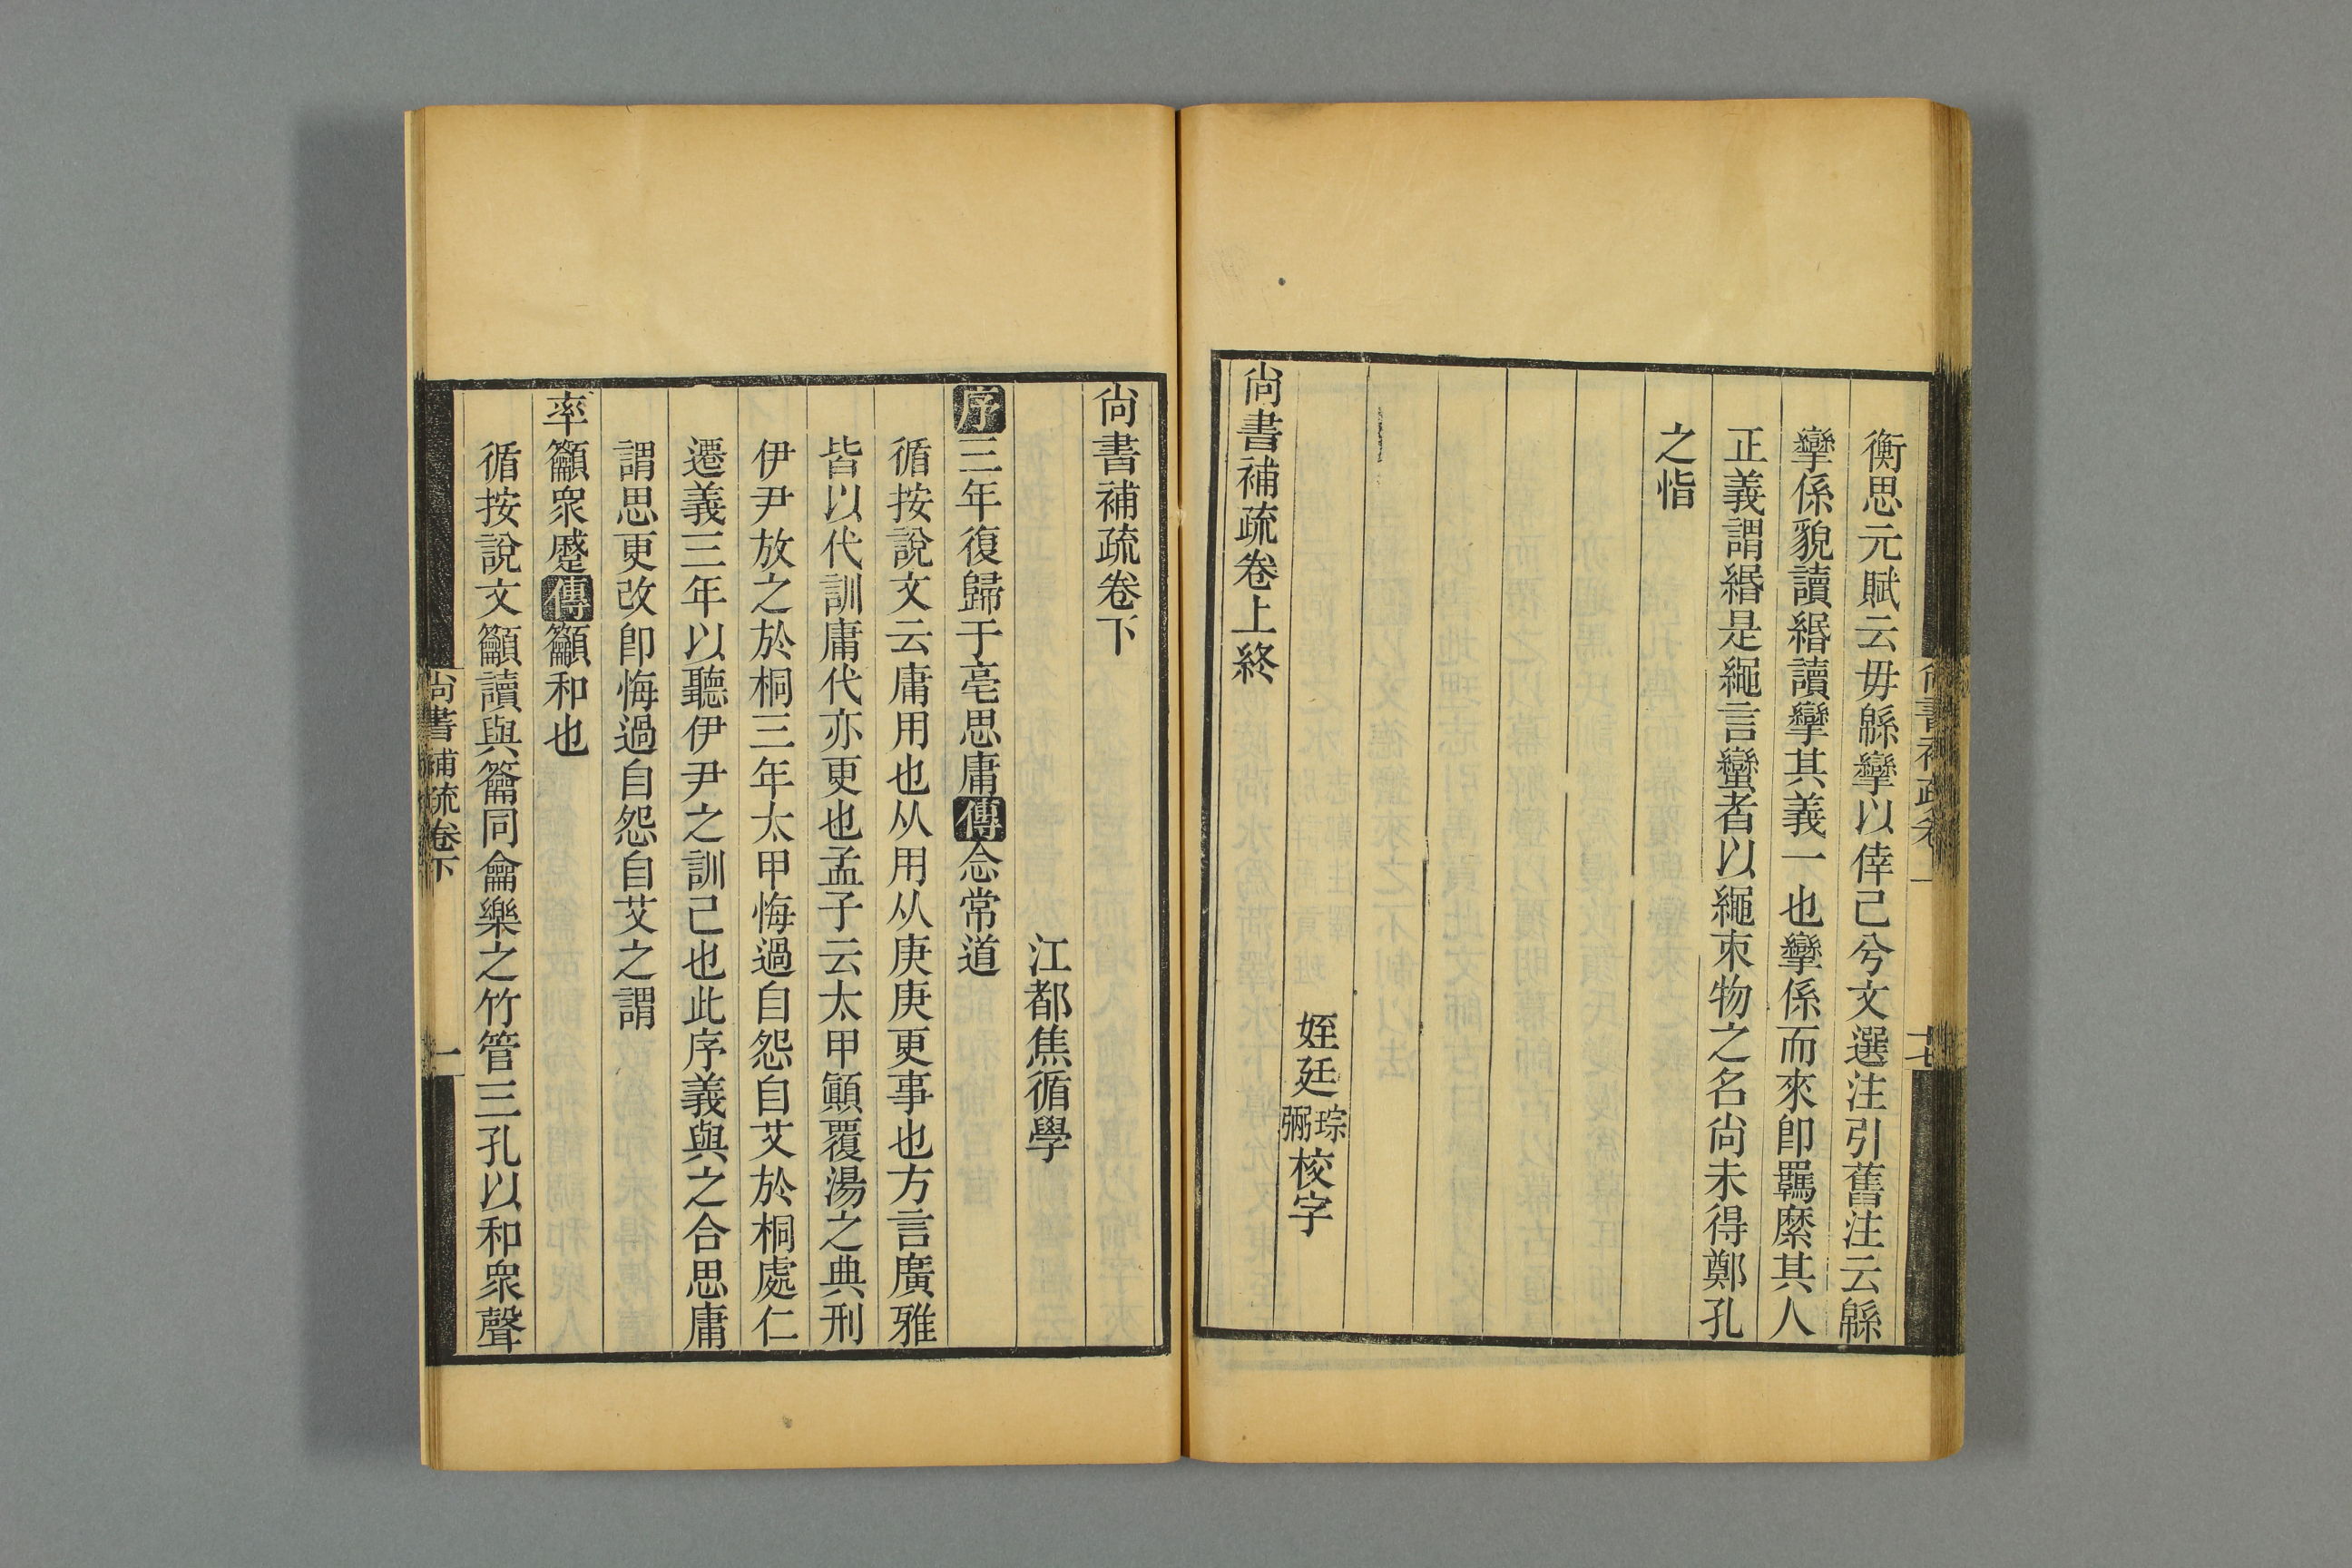 衡思元賦云毋緜攣以倖己兮文選注引舊注云緜
攣係貌讀緡讀攣其義一也攣係而來卽羈縻其人
正義謂緡是繩言蠻者以繩束物之名尙未得鄭孔
之恉
姪廷琮弼校字
尙書補疏卷上終
尙書補疏卷下
江都焦循學
序三年復歸于亳思庸傳念常道
循按說文云庸用也从用从庚庚更事也方言廣雅
皆以代訓庸代亦更也孟子云太甲顚覆湯之典刑
伊尹放之於桐三年太甲悔過自怨自艾於桐處仁
遷義三年以聽伊尹之訓己也此序義與之合思庸
謂思更改卽悔過自怨自艾之謂
率籲衆慼傳籲和也
循按說文籲讀與籥同龠樂之竹管三孔以和衆聲
尙書補疏卷下
一